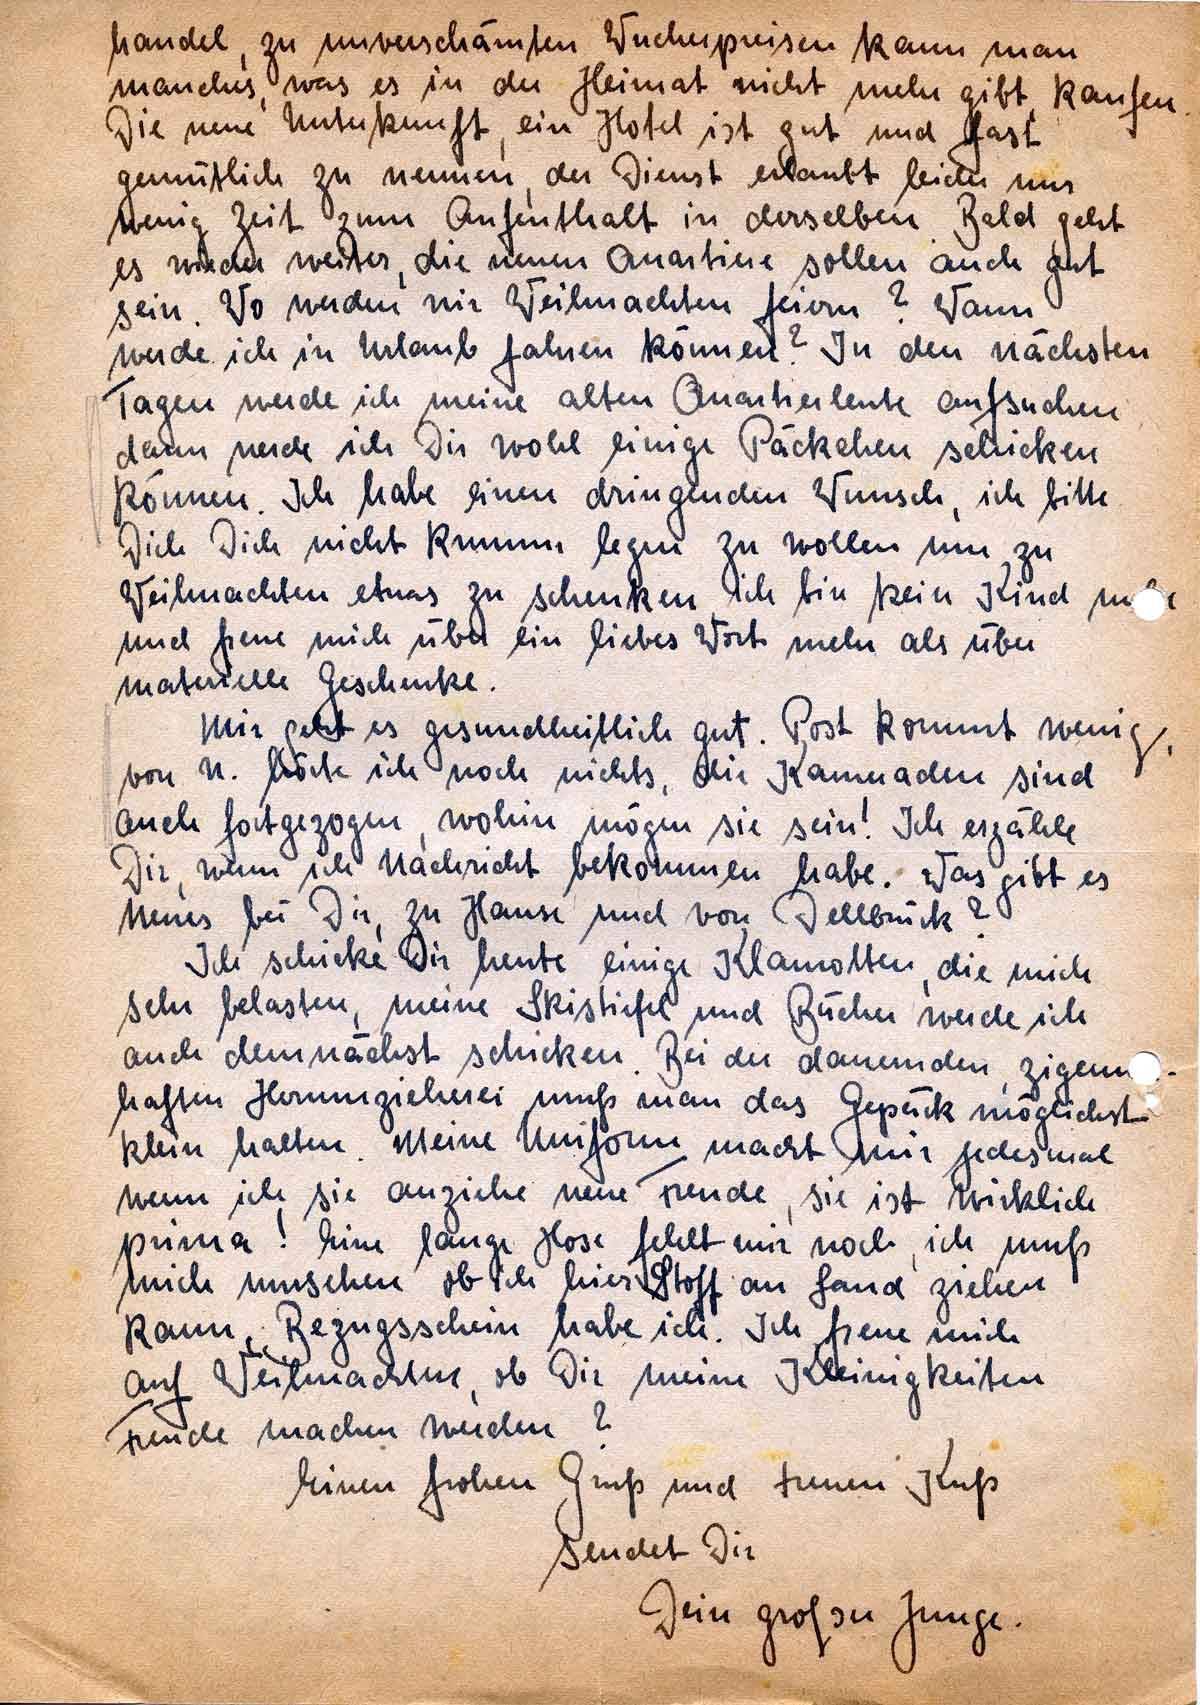 handel, zu unverschämten Wucherpreisen kann man
manches, was es in der Heimat nicht mehr gibt, kaufen.
Die neue Unterkunft, ein Hotel ist gut und fast
gemütlich zu nennen, der Dienst erlaubt leider nur
wenig Zeit zum Aufenthalt in derselben. Bald geht
es wieder weiter, die neuen Quartiere sollen auch gut
sein. Wo werden wir Weihnachten feiern? Wann
werde ich in Urlaub fahren können? In den nächsten
Tagen werde ich meine alten Quartierleute aufsuchen
dann werde ich Dir wohl einige Päckchen schicken
können. Ich habe einen dringenden Wunsch, ich bitte
Dich Dich nicht krumm legen zu wollen um zu
Weihnachten etwas zu schenken, ich bin kein Kind mehr
und freue mich über ein liebes Wort mehr als über
materielle Geschenke.
Mir geht es gesundheitlich gut. Post kommt wenig,
von N. hörte ich noch nichts, die Kameraden sind
auch fortgezogen, wohin mögen sie sein! Ich erzähle
Dir, wenn ich Nachricht bekommen habe. Was gibt es
Neues bei Dir, zu Hause und von Dellbrück?
Ich schicke Dir heute einige Klamotten, die mich
sehr belasten, meine Skistiefel und Bücher werde ich
auch demnächst schicken. Bei der dauernden, zigeuner-
haften Herumzieherei muß man das Gepäck möglichst
klein halten. Meine Uniform macht mir jedesmal
wenn ich sie anziehe neue Freude, sie ist wirklich
prima! Eine lange Hose fehlt mir noch, ich muß
mich umsehen ob ich hier Stoff an Land ziehen
kann, Bezugsschein habe ich. Ich freue mich
auf Weihnachten, ob Dir meine Kleinigkeiten
Freude machen werden?
Einen frohen Gruß und treuen Kuß
sendet Dir
Dein großer Junge.